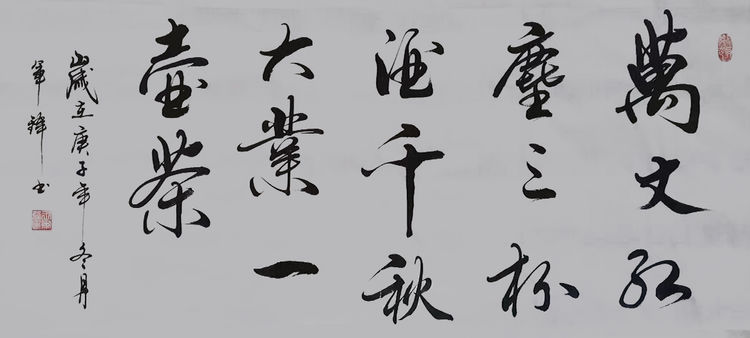 萬丈紅
塵三杯
酒千秋
大業一
壺茶
歲在庚子年冬月
軍鋒书